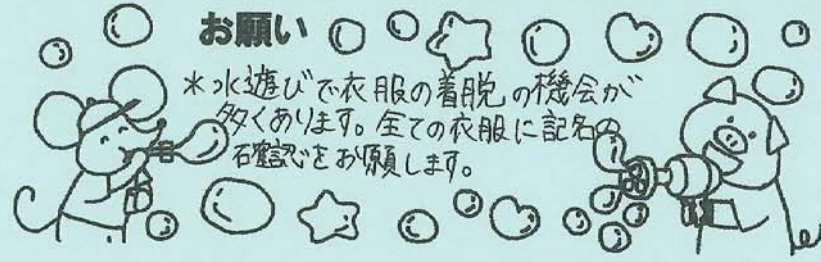 お願い
*水遊びで衣服の着脱の機会が
多くあります。全ての衣服に記名の
確認をお願します。